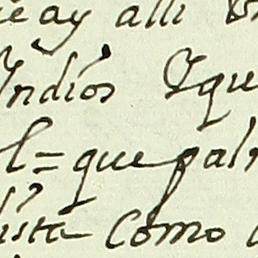 ay alli
Indios Yque
l=que pal
lista como